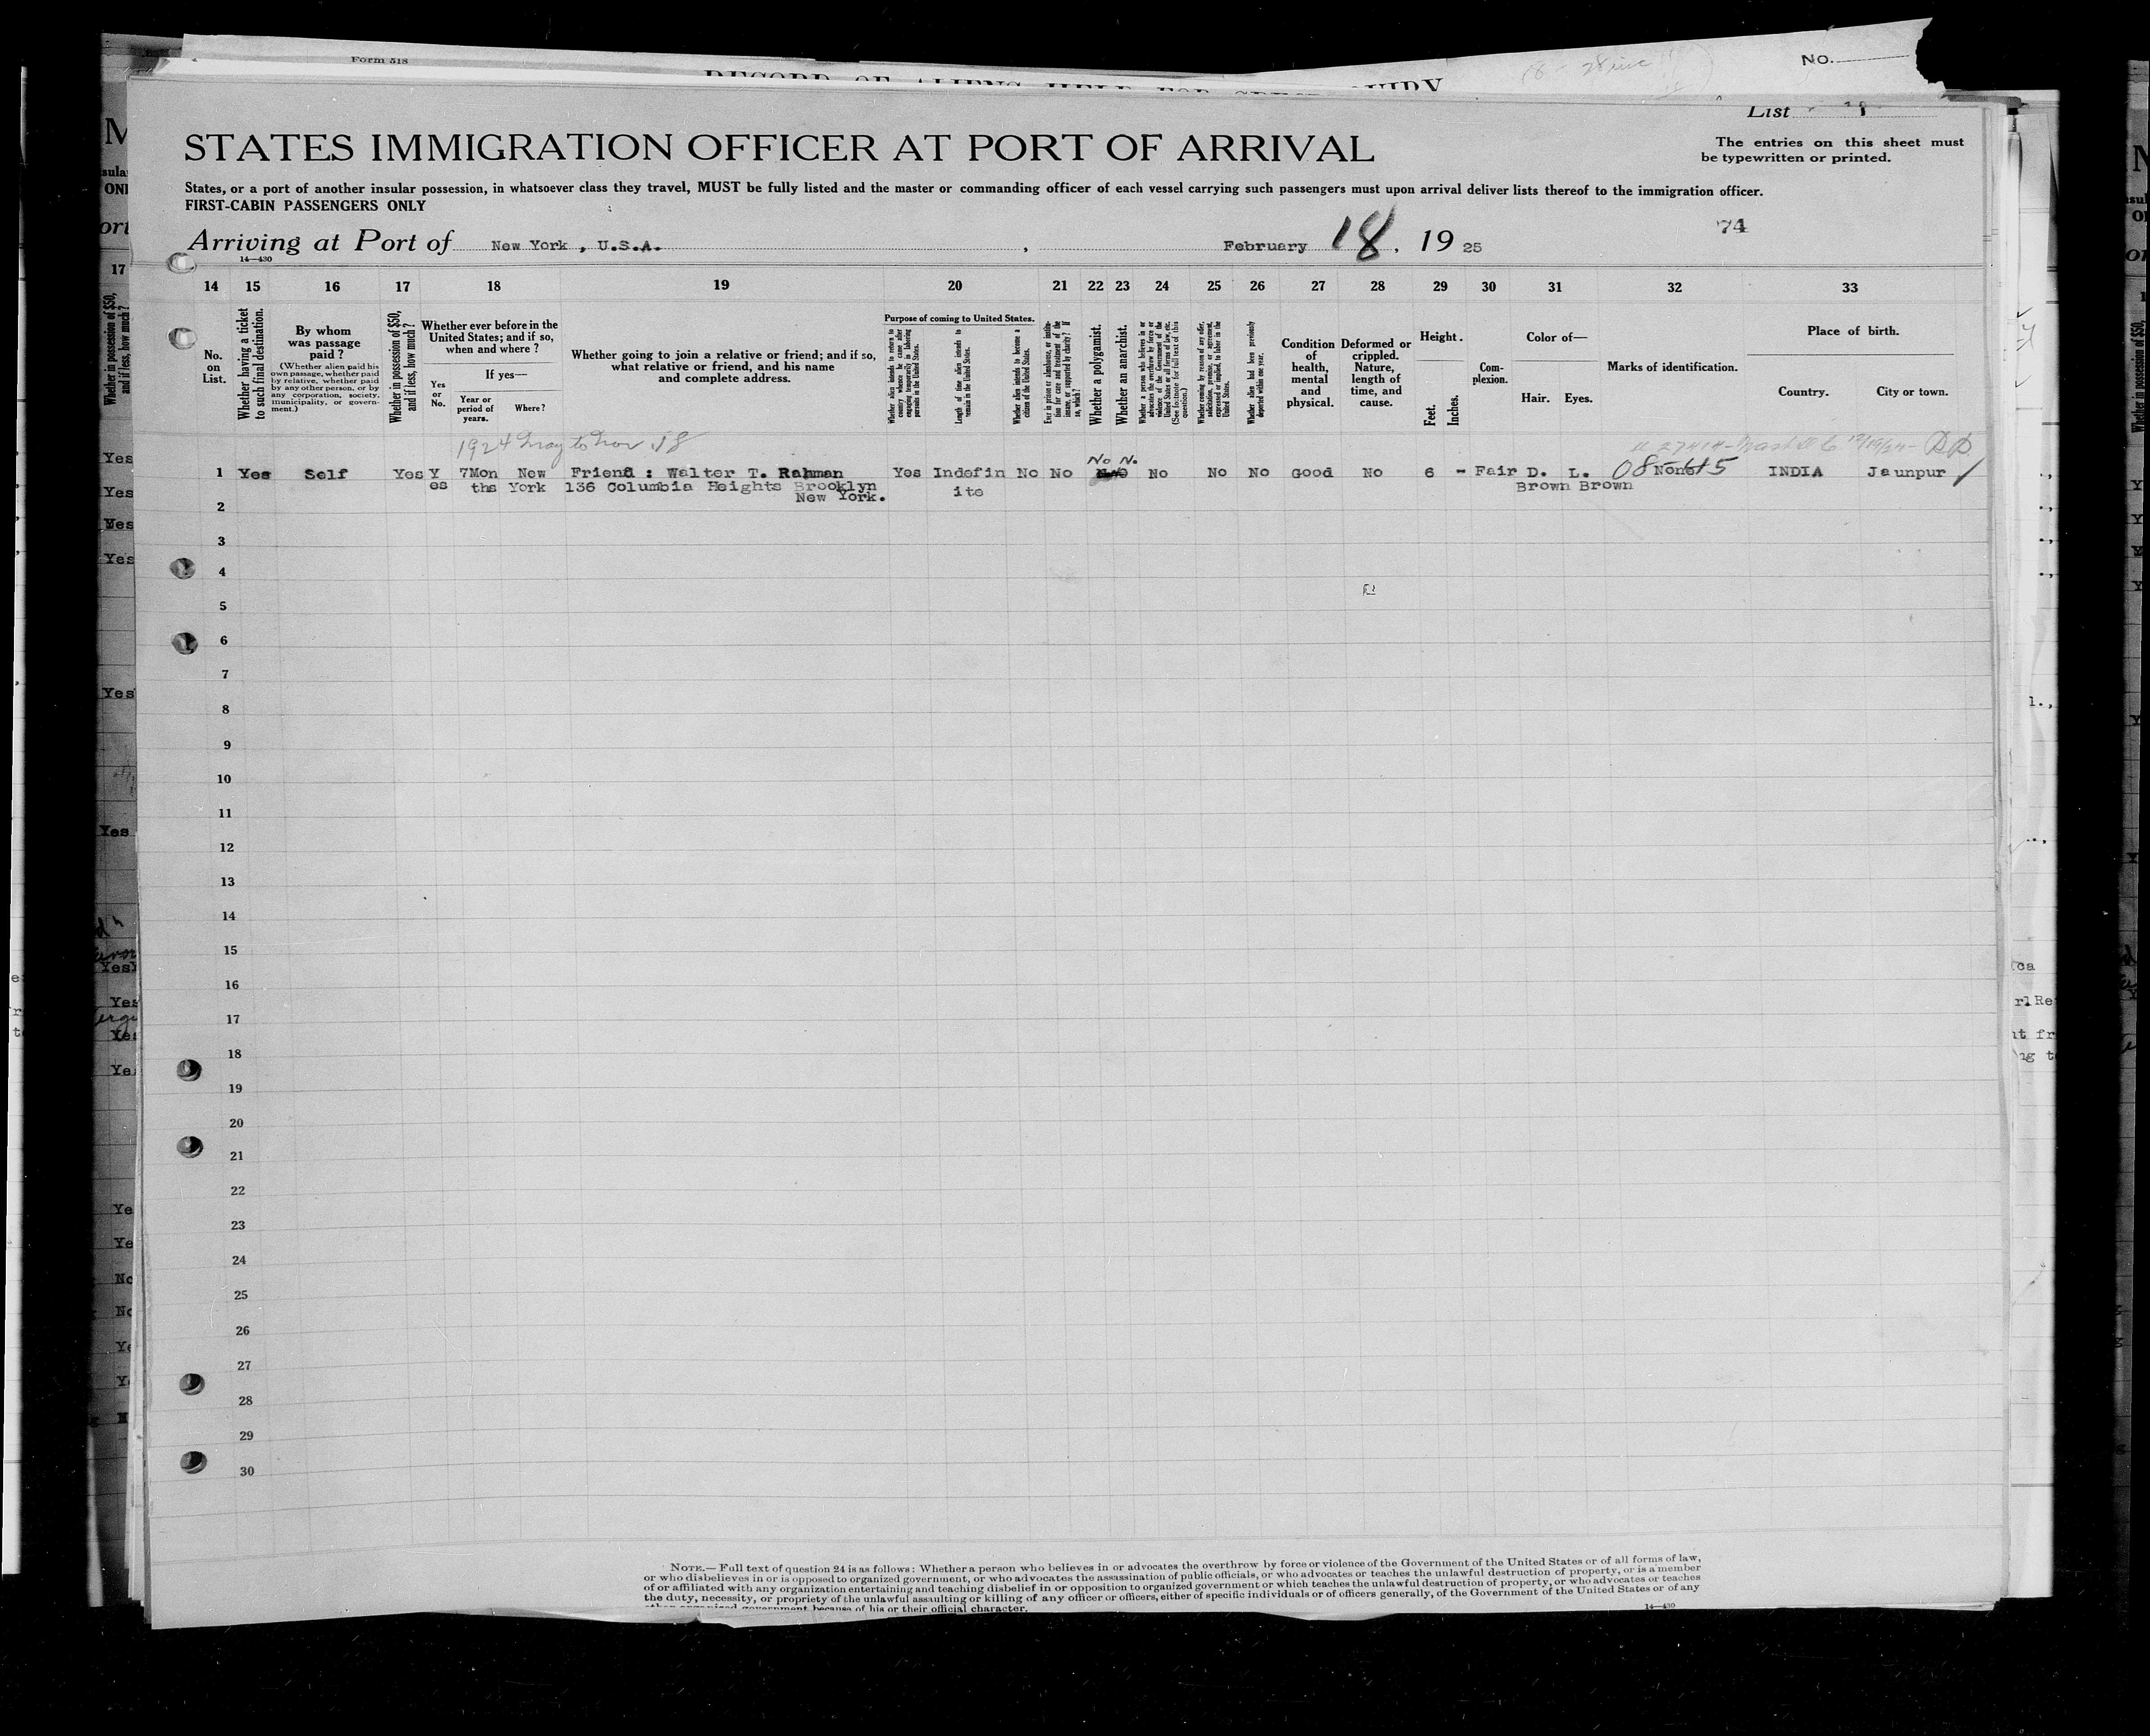 Form 518
No.
RECORD OF ALIENS HELD FOR
List
STATES IMMIGRATION OFFICER AT PORT OF ARRIVAL
The entries on this sheet must
be typewritten or printed.
States, or a port of another insular possession, in whatsoever class they travel, MUST be fully listed and the master or commanding officer of each vessel carrying such passengers must upon arrival deliver lists thereof to the immigration officer.
FIRST-CABIN PASSENGERS ONLY
74
Arriving at Port of New York , U.S.A. , February 18, 19 25
14—430
14 15 16 17 18 19 20 21 22 23 24 25 26 27 28 29 30 31 32 33
No. on List.
Whether having a ticket to such final destination.
By whom was passage paid?
(Whether alien paid his own passage, whether paid by relative, whether paid by any other person, or by any corporation, society, municipality, or government.)
Whether in possession of $50, and if less, how much?
Whether ever before in the United States; and if so, when and where?
If yes—
Yes or No.
Year or period of years.
Where?
Whether going to join a relative or friend; and if so, what relative or friend, and his name and complete address.
Purpose of coming to United States.
Whether alien intends to return to country whence he came after engaging temporarily in laboring pursuits in the United States.
Length of time alien intends to remain in the United States.
Whether alien intends to become a citizen of the United States.
Ever in prison or almshouse, or institution for care and treatment of the insane, or supported by charity? If so, which?
Whether a polygamist.
Whether an anarchist.
Whether a person who believes in or advocates the overthrow by force or violence of the Government of the United States or all forms of law, etc. (See footnote for full text of this question.)
Whether coming by reason of any offer, solicitation, promise, or agreement, expressed or implied, to labor in the United States.
Whether alien had been previously deported within one year.
Condition of health, mental and physical.
Deformed or crippled. Nature, length of time, and cause.
Height.
Feet. Inches.
Complexion.
Color of—
Hair. Eyes.
Marks of identification.
Place of birth.
Country. City or town.
1924 May to Nov 18
No No
1 Yes Self Yes Y 7Mon New Friend : Walter T. Rahman Yes Indefin No No No No No Good No 6 - Fair D. L. None INDIA Jaunpur
es ths York 136 Columbia Heights Brooklyn ite Brown Brown
New York.
2
3
4
5
6
7
8
9
10
11
12
13
14
15
16
17
18
19
20
21
22
23
24
25
26
27
28
29
30
NOTE.—Full text of question 24 is as follows: Whether a person who believes in or advocates the overthrow by force or violence of the Government of the United States or of all forms of law,
or who disbelieves in or is opposed to organized government, or who advocates the assassination of public officials, or who advocates or teaches the unlawful destruction of property, or is a member
of or affiliated with any organization entertaining and teaching disbelief in or opposition to organized government or which teaches the unlawful destruction of property, or who advocates or teaches
the duty, necessity, or propriety of the unlawful assaulting or killing of any officer or officers, either of specific individuals or of officers generally, of the Government of the United States or of any
other organized government because of his or their official character.
14—430